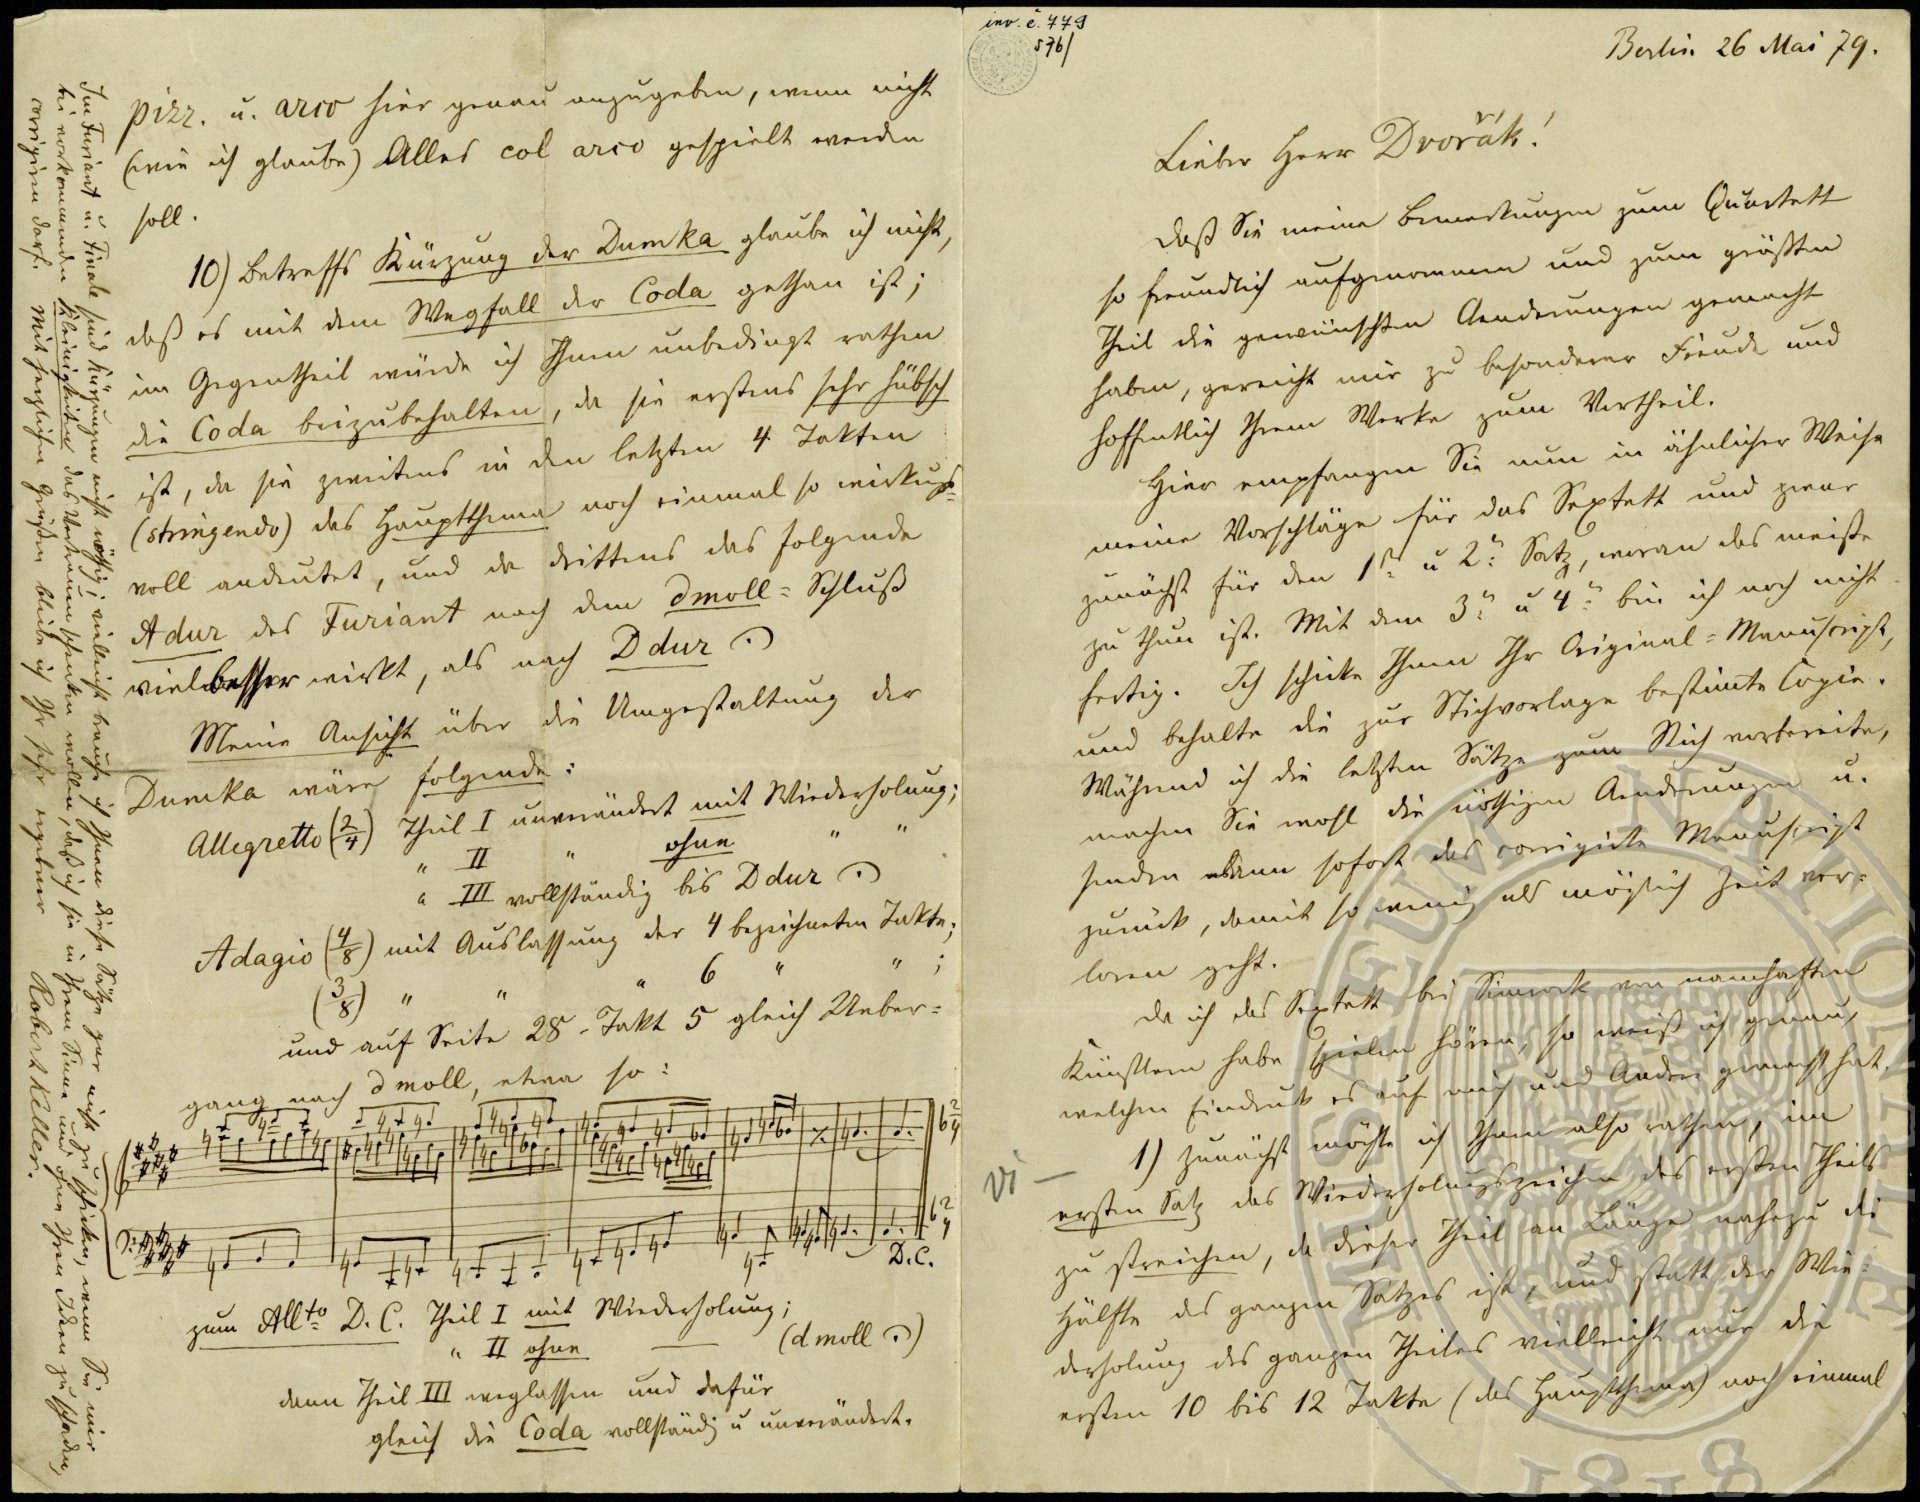 inv. č. 779
576/
Berlin 26 Mai 79.
Lieber Herr Dvořák!
Daß Sie meine Bemerkungen zum Quartett
so freundlich aufgenommen und zum größten
Theil die gewünschten Aenderungen gemacht
haben, gereicht mir zu besonderer Freude und
hoffentlich Ihrem Werke zum Vortheil.
Hier empfangen Sie nun in ähnlicher Weise
meine Vorschläge für das Sextett und zwar
zunächst für den 1st. u 2n. Satz, woran das meiste
zu thun ist. Mit dem 3n. u 4n. bin ich noch nicht
fertig. Ich schicke Ihnen Ihr Original-Manuscript,
und behalte die zur Stichvorlage bestimte Copie.
Während ich die letzten Sätze zum Stich vorbereite,
machen Sie wohl die nöthigen Aenderungen u.
senden dann sofort das corrigirte Manuscript
zurück, damit so wenig als möglich Zeit ver-
loren geht.
Da ich das Sextett bei Simrock von namhaften
Künstlern habe spielen hören, so weiß ich genau,
welchen Eindruck es auf mich und Andere gemacht hat.
1) Zunächst möchte ich Ihnen also rathen, im
VI —
ersten Satz das Wiederholungszeichen des ersten Theils
zu streichen, da dieser Theil an Länge nahezu die
Hälfte des ganzen Satzes ist, und statt der Wie-
derholung des ganzen Theiles vielleicht nur die
ersten 10 bis 12 Takte (das Hauptthema) noch einmal
pizz. u. arco hier genau anzugeben, wenn nicht
(wie ich glaube) Alles col arco gespielt werden
soll.
10) Betreffs Kürzung der Dumka glaube ich nicht,
daß es mit dem Wegfall der Coda gethan ist;
im Gegentheil würde ich Ihnen unbedingt rathen
die Coda beizubehalten, da sie erstens sehr hübsch
ist, da sie zweitens in den letzten 4 Takten
(stringendo) das Hauptthema noch einmal so wirkungs-
voll andeutet, und da drittens das folgende
A dur des Furiant nach dem d moll-Schluß
viel besser wirkt, als nach D dur
Meine Ansicht über die Umgestaltung der
Dumka wäre folgende:
Allegretto (2/4) Theil I unverändert mit Wiederholung;
" II " ohne " "
" III vollständig bis D dur
Adagio (4/8) mit Auslassung der 4 bezeichneten Takte;
(3/8) " " " 6 " " ;
und auf Seite 28 - Takt 5 gleich Ueber-
gang nach d moll, etwa so:
2/4
2/4
D.C.
zum Allto D.C. Theil I mit Wiederholung;
" II ohne —— (d moll)
dann Theil III weglassen und dafür
gleich die Coda vollständig u unverändert.
Im Furiant u. Finale sind Kürzungen nicht nöthig; vielleicht brauche ich Ihnen diese Sätze gar nicht zu schicken, wenn Sie mir
bei vorkommenden Kleinigkeiten das Vertrauen schenken wollen, daß ich sie in Ihrem Sinne und ohne Ihren Ideen zu schaden,
corrigiren darf. Mit herzlichen Grüßen bleibe ich Ihr sehr ergebener Robert Keller.
MUSEUM NATIONALE
1818